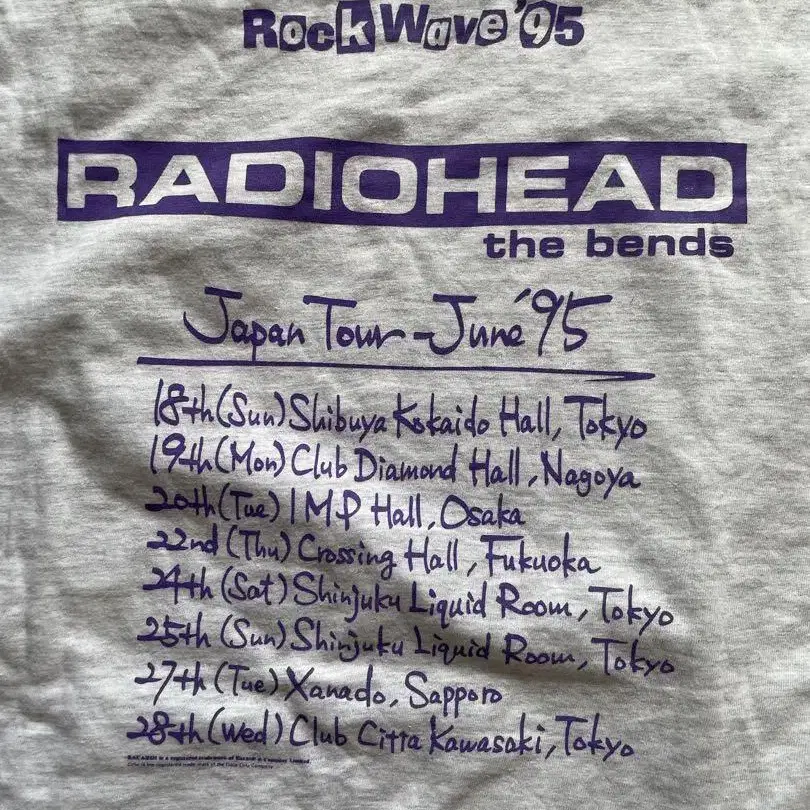 Rock Wave '95
RADIOHEAD
the bends
Japan Tour - June '95
18th (Sun) Shibuya Kokaido Hall, Tokyo
19th (Mon) Club Diamond Hall, Nagoya
20th (Tue) IMP Hall, Osaka
22nd (Thu) Crossing Hall, Fukuoka
24th (Sat) Shinjuku Liquid Room, Tokyo
25th (Sun) Shinjuku Liquid Room, Tokyo
27th (Tue) Xanado, Sapporo
28th (Wed) Club Citta Kawasaki, Tokyo
is a registered trade mark of